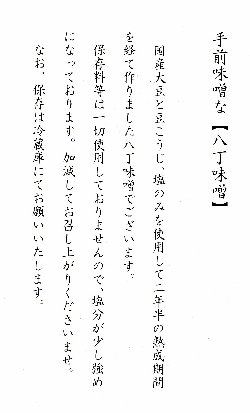 手前味噌な【八丁味噌】
国産大豆と豆こうじ、塩のみを使用して二年半の熟成期間
を経て作りました八丁味噌でございます。
保存料等は一切使用しておりませんので、塩分が少し強め
になっております。加減してお召し上がりくださいませ。
なお、保存は冷蔵庫にてお願いいたします。